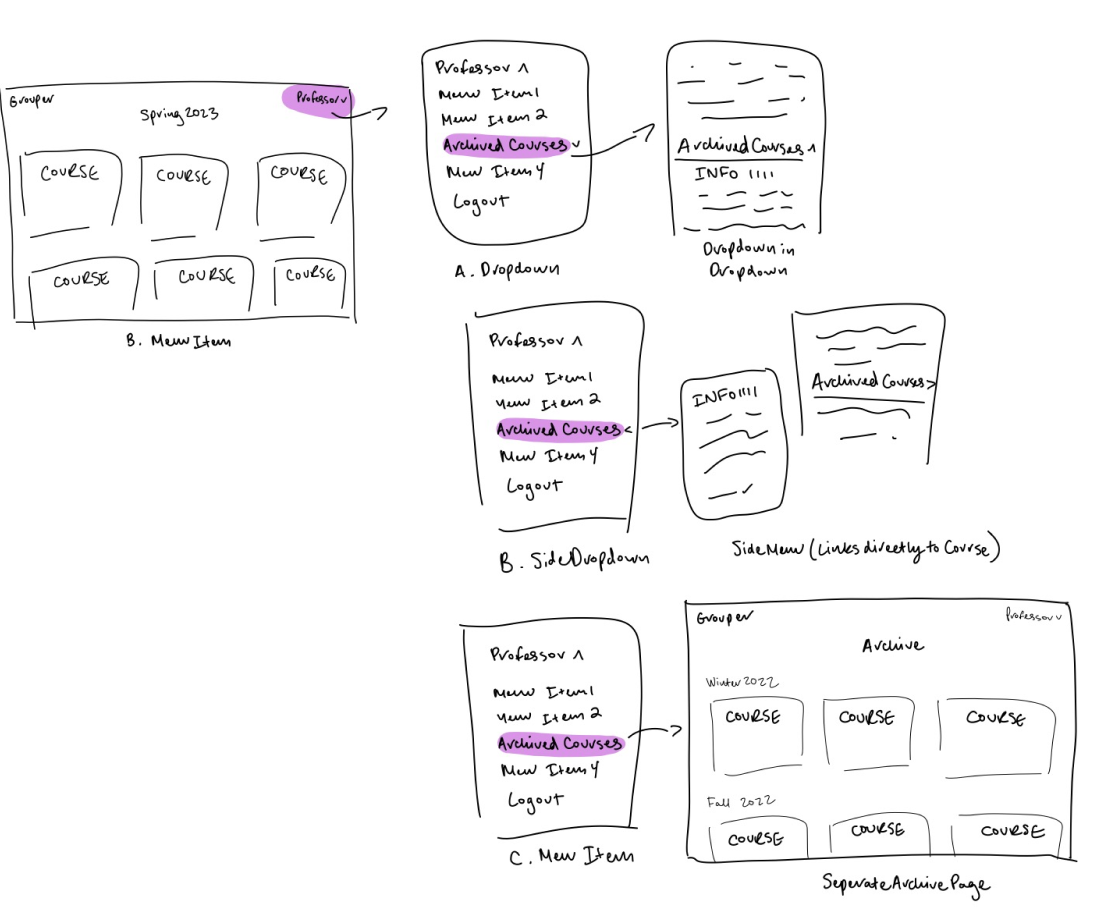 Grouper
Professor v
Spring 2023
COURSE
COURSE
COURSE
COURSE
COURSE
COURSE
B. Menu Item
Professor ^
Menu Item 1
Menu Item 2
Archived Courses v
Menu Item 4
Logout
A. Dropdown
Archived Courses ^
INFO
Dropdown in
Dropdown
Professor ^
Menu Item 1
Menu Item 2
Archived Courses <
Menu Item 4
Logout
B. Side Dropdown
INFO
Archived Courses >
Side Menu (Links directly to Course)
Professor ^
Menu Item 1
Menu Item 2
Archived Courses
Menu Item 4
Logout
C. Menu Item
Grouper
Professor v
Archive
Winter 2022
COURSE
COURSE
COURSE
Fall 2022
COURSE
COURSE
COURSE
Seperate Archive Page